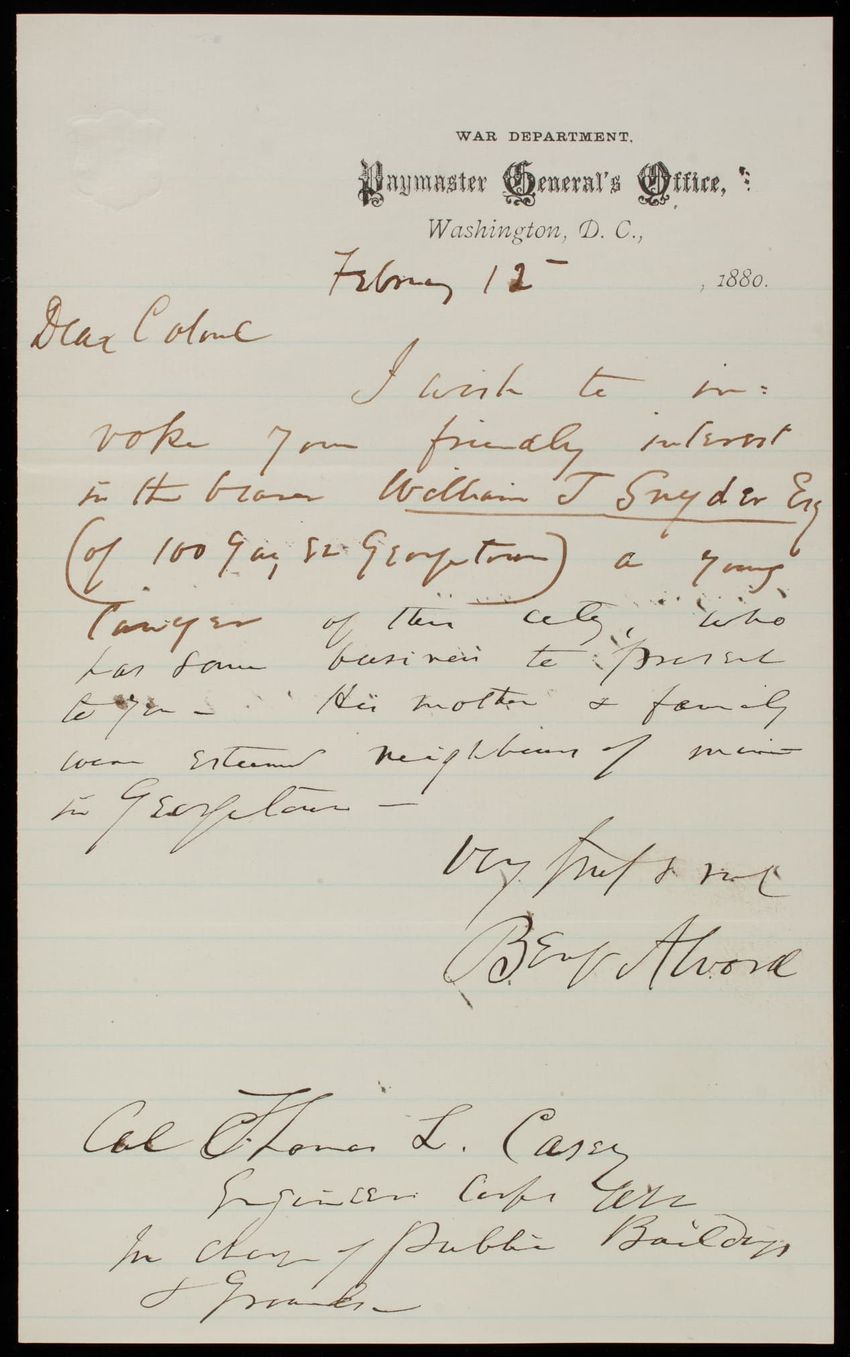 WAR DEPARTMENT,
Paymaster General's Office,
Washington, D. C.,
February 12 , 1880.
Dear Colonel
I wish to in=
voke your friendly interest
in the bearer William T Snyder Esq
(of 100 Gay St Georgetown) a young
lawyer of this city, who
has some business to present
to you - His mother & family
were esteemed neighbours of mine
in Georgetown -
Very truly & resp
Benj Alvord
Col Thomas L. Casey
Engineer Corps
In charge of Public Buildings
& Grounds